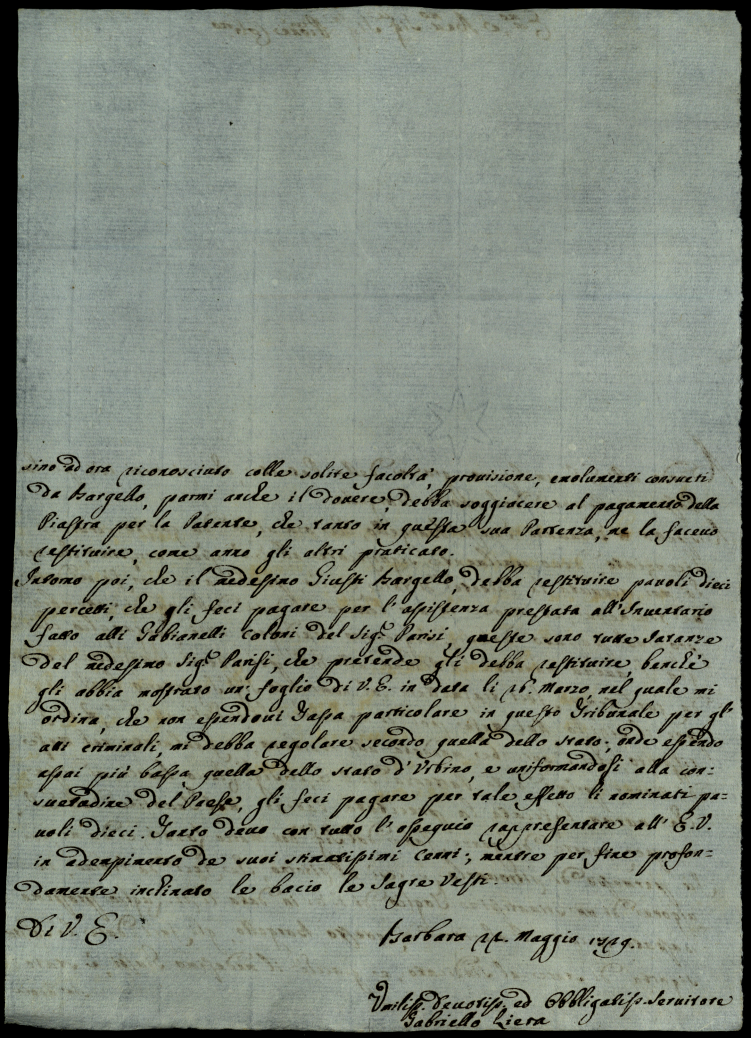 sino ad ora riconosciuto colle solite facoltà, provisione, emolumenti consueti
da Bargello, parmi anche il dovere, debba soggiacere al pagamento della
Piastra per la Patente, che tanto in questa sua Partenza, me la faceuo
restituire, come anno gli altri praticato.
Intorno poi, che il medesimo Giusti Bargello, debba restituire pauoli dieci
percetti, che gli feci pagare per l'assistenza prestata all'Inventario
fatto alli Gabianelli Coloni del Sigr. Parisi, queste sono tutte Istanze
del medesimo Sigr. Parisi, che pretende gli debba restituire, benchè
gli abbia mostrato un' foglio di V. E. in data li 26. Marzo, nel quale mi
ordina, che non essendoui Tassa particolare in questo Tribunale per gl'
atti criminali, mi debba regolare secondo quella dello stato; onde essendo
assai più bassa quella dello stato d'Urbino, e uniformandosi alla con-
suetudine del Paese, gli feci pagare per tale effetto li nominati pa-
uoli dieci. Tanto deuo con tutto l'ossequio rappresentare all' E. V.
in adempimento de suoi stimatissimi Cenni; mentre per fine profon-
damente inclinato le bacio le Sagre Vesti.
Di V. E.
Barbara Maggio
Umiliss. Deuotiss. ed Obbligatiss. Seruitore
Gabriello Liera